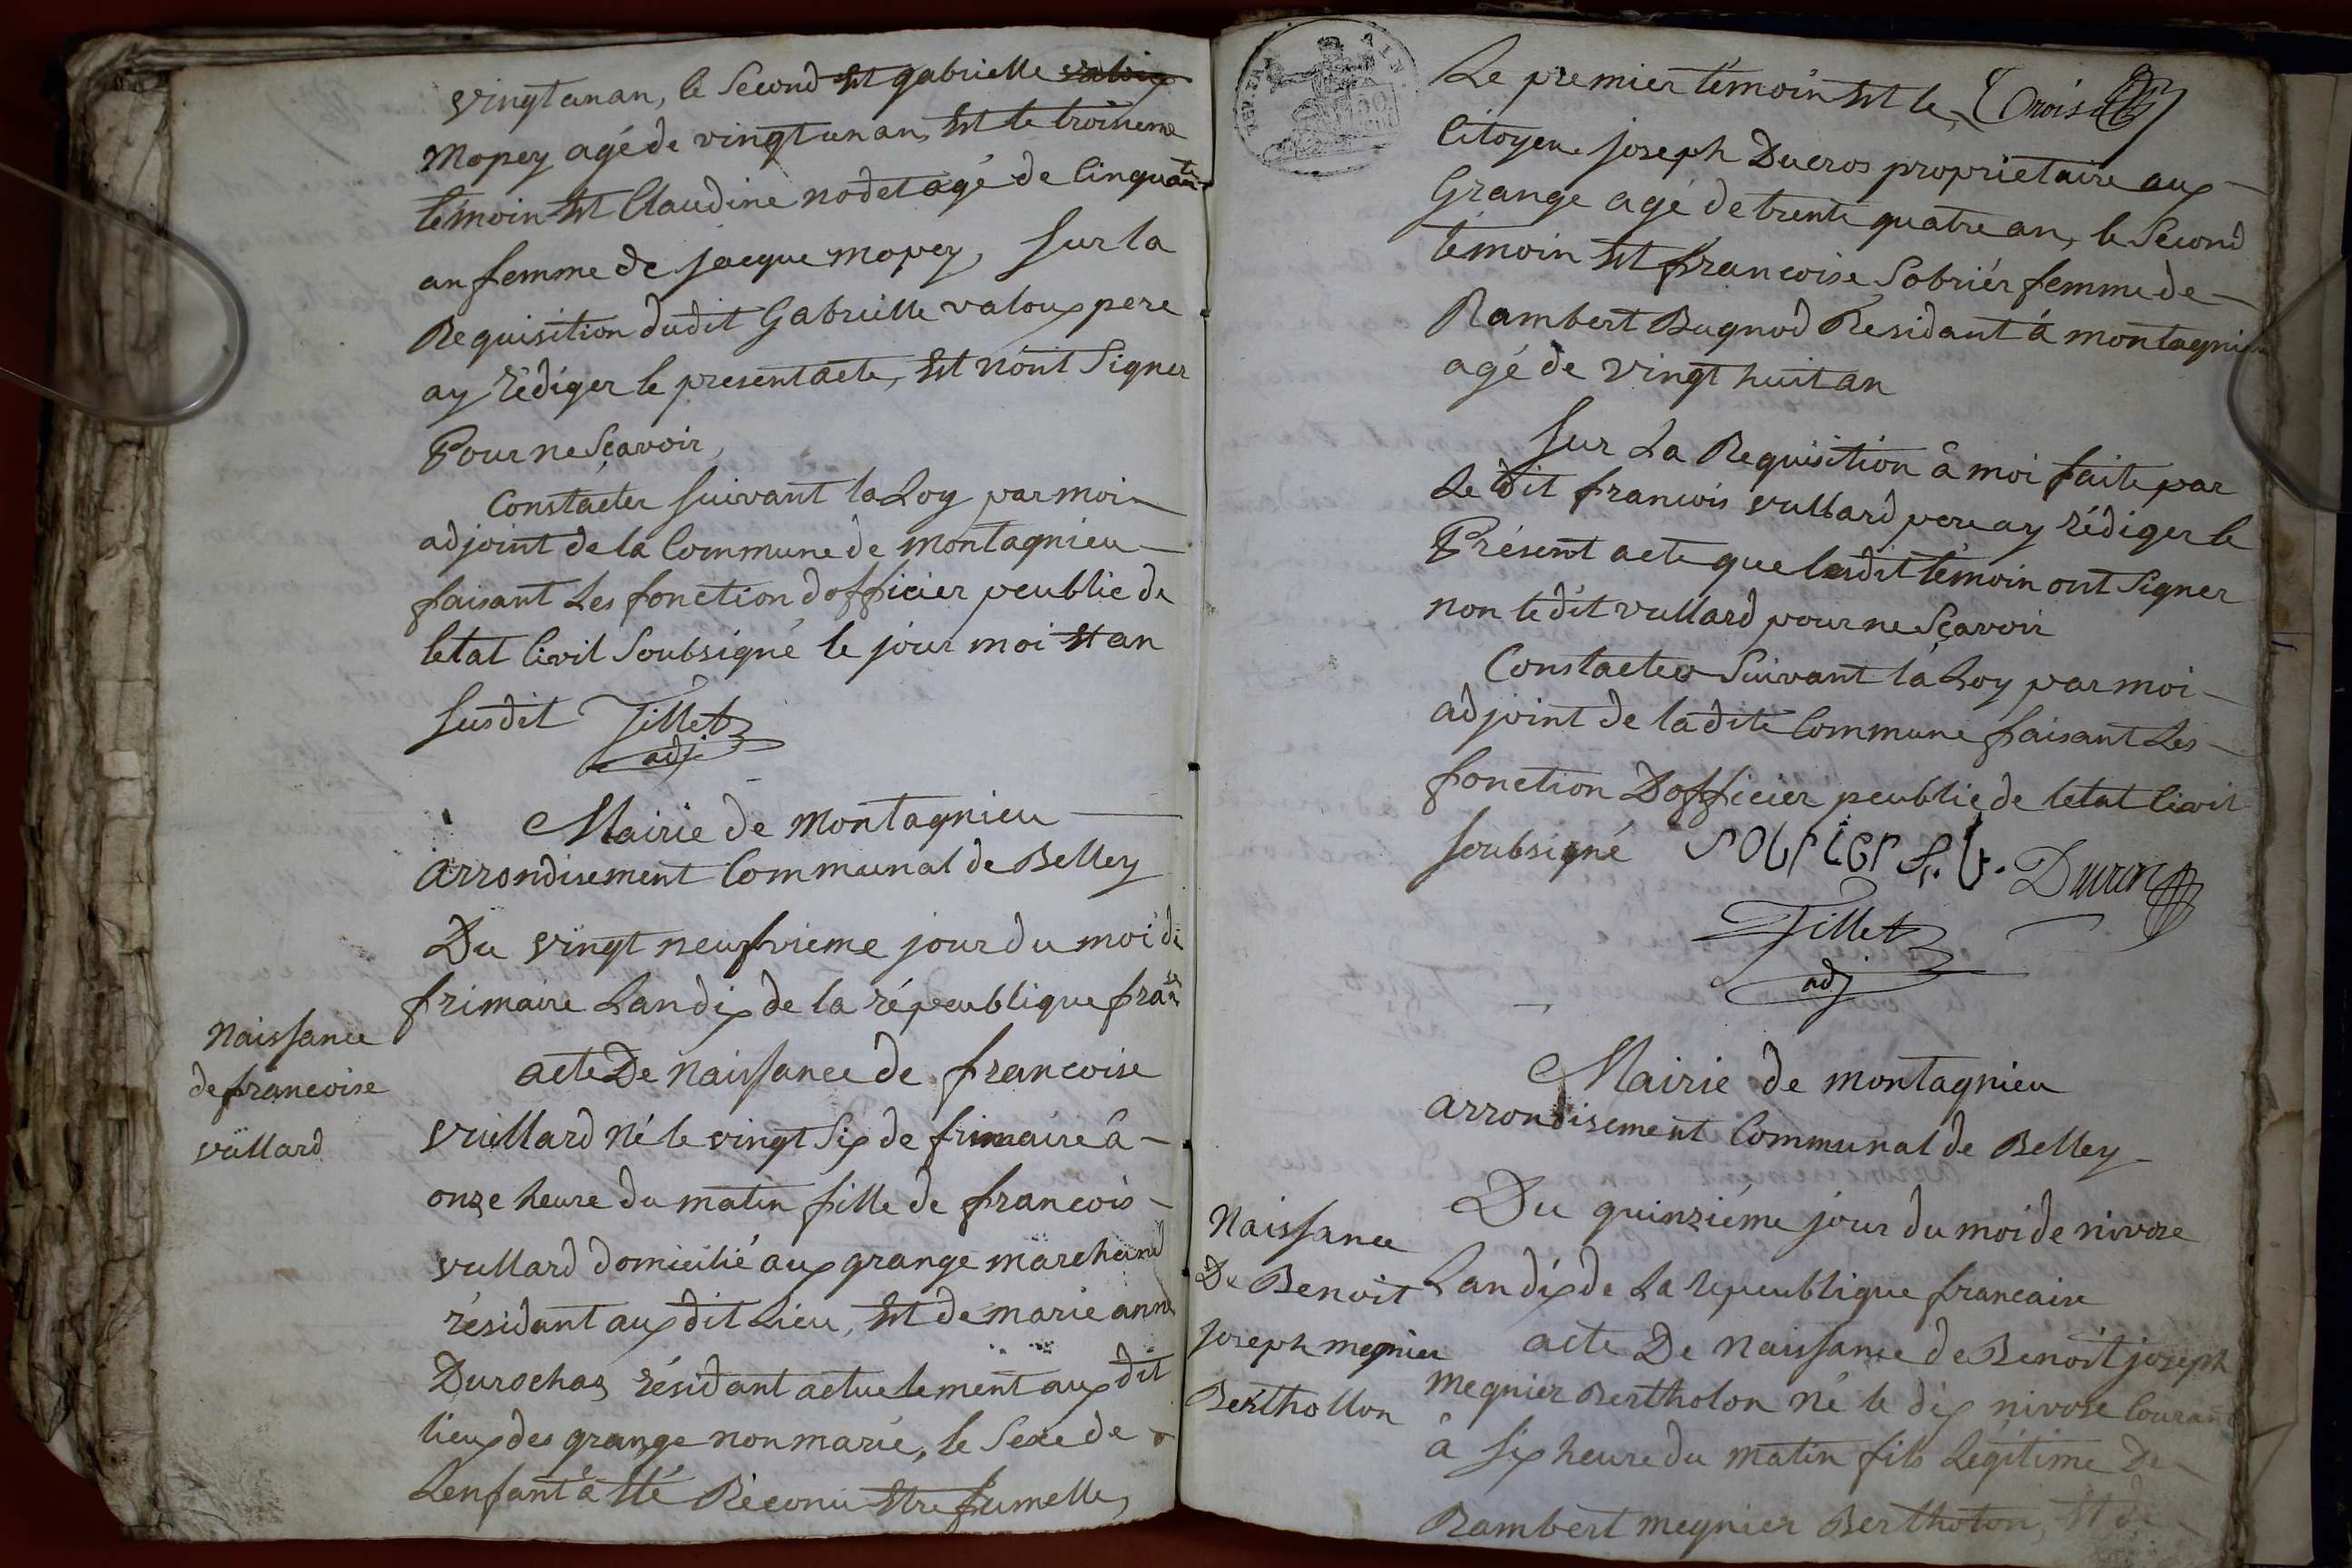 vingt unan, le Second Et gabrielle valoux
Mopey agé de vingt un an, Et le troisieme
temoin Et Claudine nodet agé de Cinquante
an femme de jacque mopey, Sur la
Requisition dudit Gabrielle valoux pere
ay rédiger le present acte, Et nont Signer
Pour ne Sçavoir,
Constacter Suivant la Loy par moi
adjoint de la Commune de montagnieu
faisant Les fonction dofficier peublic de
letat Civil Soubsigné le jour moi Et an
Susdit Tillet
adj
Mairie de montagnieu
arrondisement Communal de Belley
Du vingt neufvieme jour du moi de
frimaire Landix de la répeublique franse
Naissance
de francoise
vullard
acte De Naissance de francoise
vullard Né le vingt Six de frimaire à
onze heure du matin fille de francois
vullard domicilié aux grange marchand
résidant aux dit Lieu, Et de marie anne
Durochas résidant actuelement aux dit
lieux des grange non marié, le Sexe de
Lenfant à Eté Réconu Etre fumelle,
Le premier témoin Et le
trois
Citoyen joseph Ducros proprietaire aux
Grange agé de trente quatre an, le Second
témoin Et francoise Sobrier femme de
Rambert Bugnod Residant à montagnieu
agé de vingt huit an
Sur La Requisition à moi faite par
Le dit francois vullard pere ay rédiger le
Présent acte que lesdit témoin ont Signer
non le dit vullard pour ne Sçavoir
Constacter Suivant la Loy par moi
adjoint de la dite Commune faisant Les
fonction Dofficier peublic de letat Civil
Soubsigné sobrier
Tillet
adj
Mairie de montagnieu
arrondisement Communal de Belley
Du quinziéme jour du moi de nivose
Naissance
De Benoit
joseph megnier
Berthollon
Landix de La repeublique francaise
acte De Naissance de Benoit joseph
megnier Bertholon Né le dix nivose Courant
à Six heure du matin fils Légitime De
Rambert megnier Bertholon, Et de